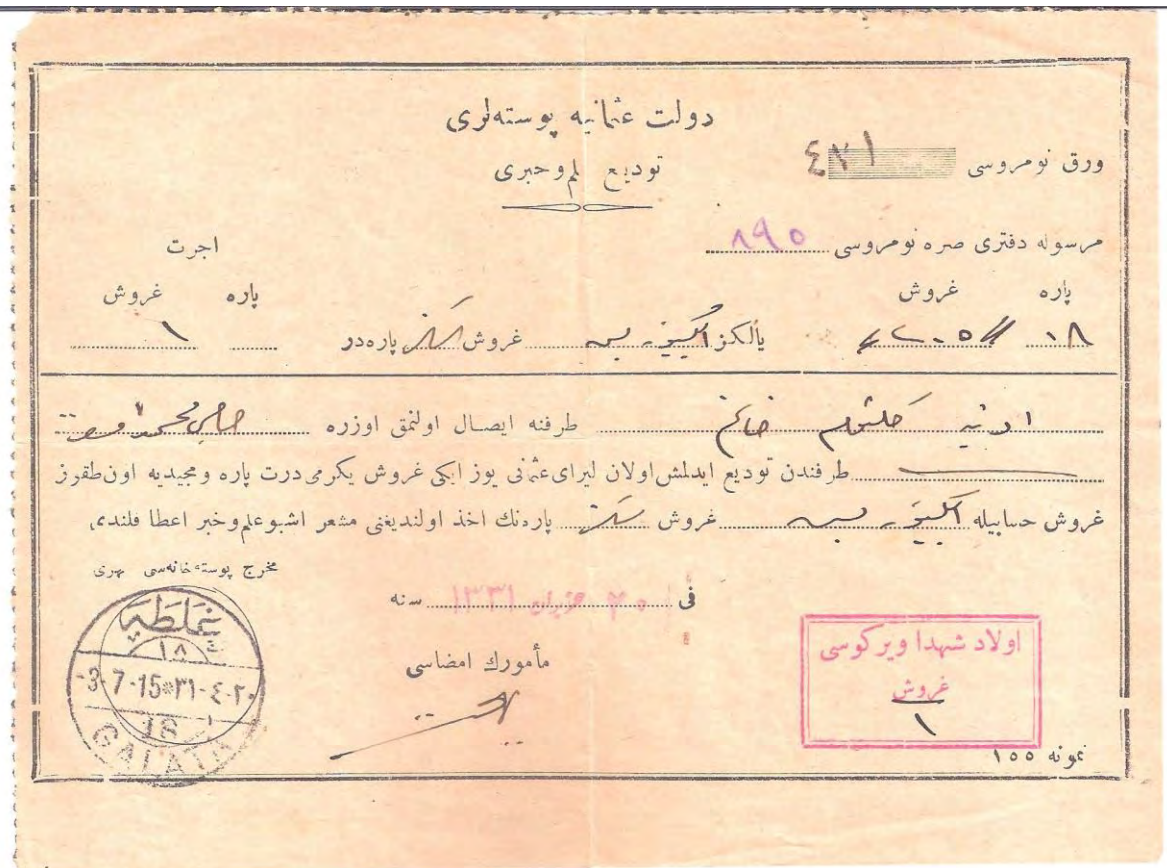 دولت عثمانیه پوسته‌لری
تودیع علم وخبری
ورق نومروسی ٤٣١
مرسوله دفتری صره نومروسی ٨٩٥
اجرت
پاره غروش
پاره غروش
١٨ ٢٠٥ یالکز ایکییوز بش غروش سکز پاره‌در ١
خانم طرفنه ایصال اولنمق اوزره حاجی محمد
طرفندن تودیع ایدلمش اولان لیرای عثمانی یوز ایکی غروش یکرمی درت پاره ومجیدیه اون طقوز
غروش حسابیله ایکییوز بش غروش سکز پاره‌نك اخذ اولندیغنی مشعر اشبو علم وخبر اعطا قلندی
مخرج پوسته‌خانه‌سی مهری
فی ٢٠ حزیران ١٣٣١ سنه
مأمورك امضاسی
غلطه
١٨
3-7-15*٣١-٤-٢٠
18
GALATA
اولاد شهدا ویركوسی
غروش
١
نمونه ١٥٥